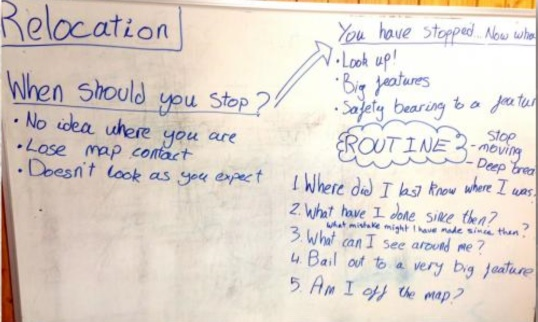 Relocation
When should you stop?
• No idea where you are
• Lose map contact
• Doesn't look as you expect
You have stopped.. Now wha
• Look up!
• Big features
• Safety bearing to a featur
ROUTINE
- stop
moving
- Deep brea
1. Where did I last know where I was.
2. What have I done since then?
what mistake might I have made since then?
3. What can I see around me?
4. Bail out to a very big feature
5. Am I off the map?